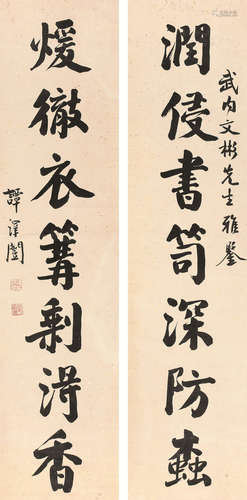 武内文彬先生雅鑒
潤侵書笥深防螙
煖徹衣篝剩淂香
譚澤闓